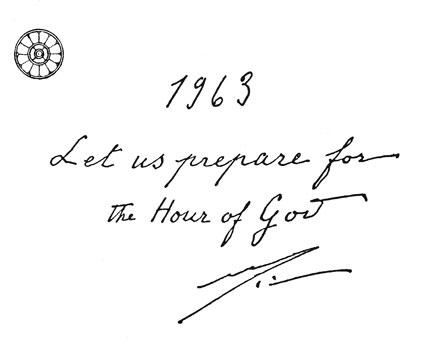 1963
Let us prepare for
the Hour of God